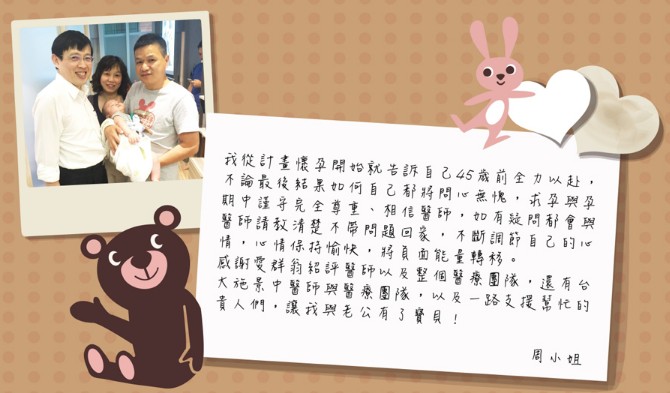 我從計畫懷孕開始就告訴自己45歲前全力以赴，
不論最後結果如何自己都將問心無愧，求孕與孕
期中謹守完全尊重、相信醫師，如有疑問都會與
醫師請教清楚不帶問題回家，不斷調節自己的心
情，心情保持愉快，將負面能量轉移。
感謝愛群翁紹評醫師以及整個醫療團隊，還有台
大施景中醫師與醫療團隊，以及一路支援幫忙的
貴人們，讓我與老公有了寶貝！
周小姐